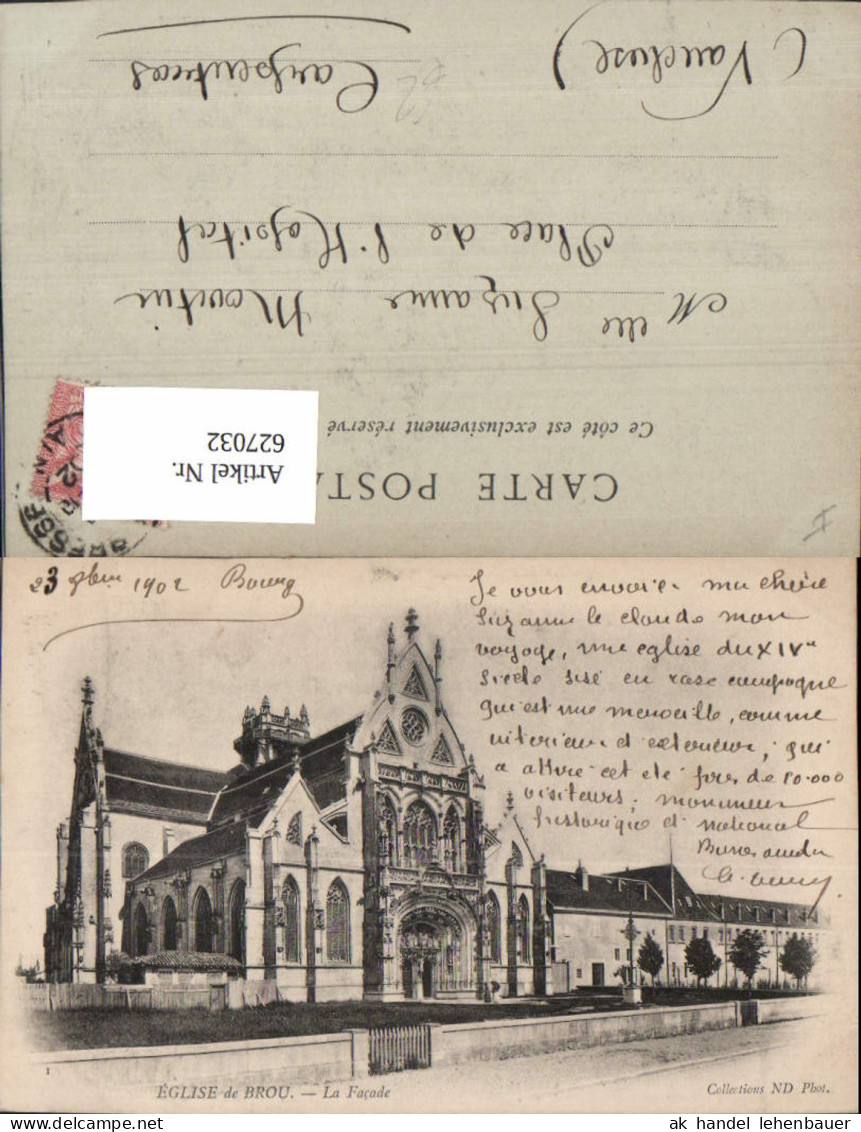 CARTE POSTA
Ce côté est exclusivement réservé
Artikel Nr.
627032
Mlle Suzanne
Place de l'Hopital
Carpentras
(Vaucluse)
23 1902 Bourg
Je vous envoie ma chère
Suzanne le clou de mon
voyage, une eglise du XIVe
Siècle sise en rase campagne
qui est une merveille, comme
interieur et exterieur, qui
a attiré cet été près de 10.000
visiteurs; monument
historique et national
1
ÉGLISE de BROU. — La Façade
Collections ND Phot.
ak handel lehenbauer